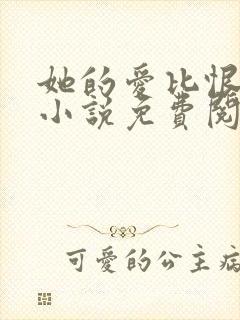 她的愛比恨
小說免費閱
可愛的公主病